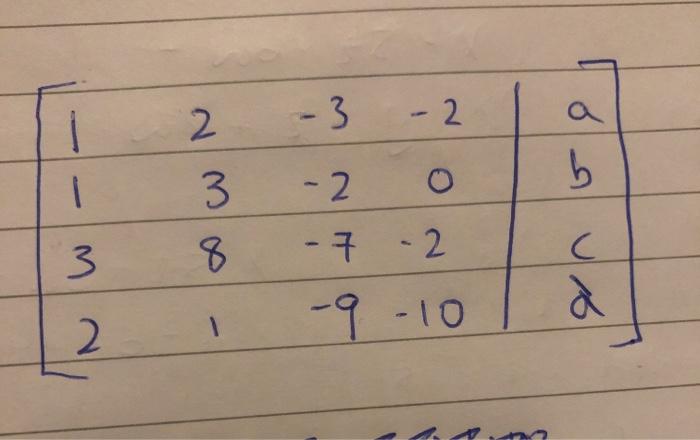 1 2 -3 -2 | a
1 3 -2 0 | b
3 8 -7 -2 | c
2 1 -9 -10 | d